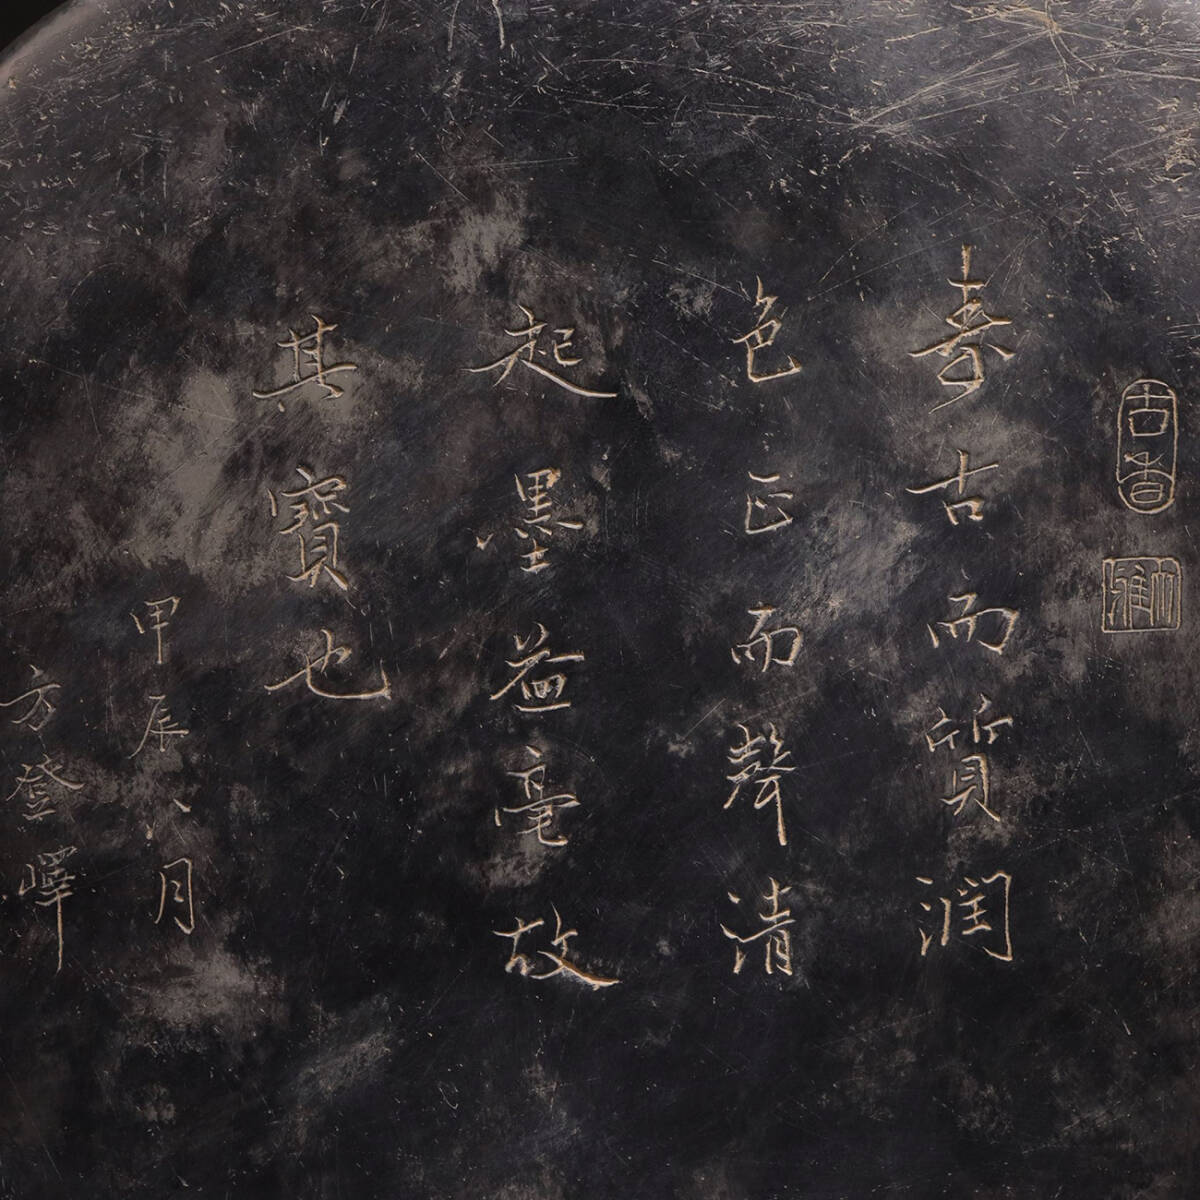 古香
寿古而質潤
色正而聲清
起墨益毫故
其寶也
甲辰八月
方登嶧